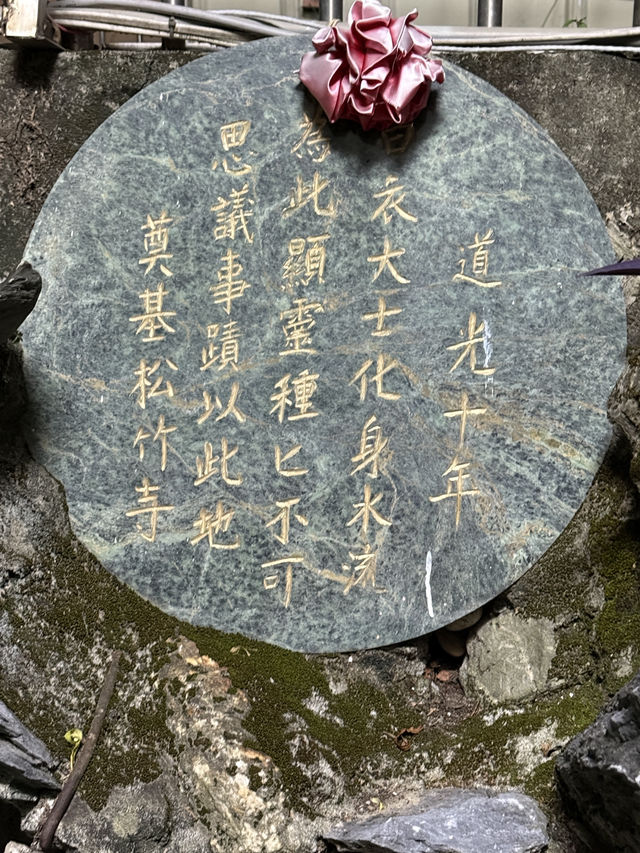 道光十年
白衣大士化身水流
為此顯靈種匕不可
思議事蹟以此地
奠基松竹寺